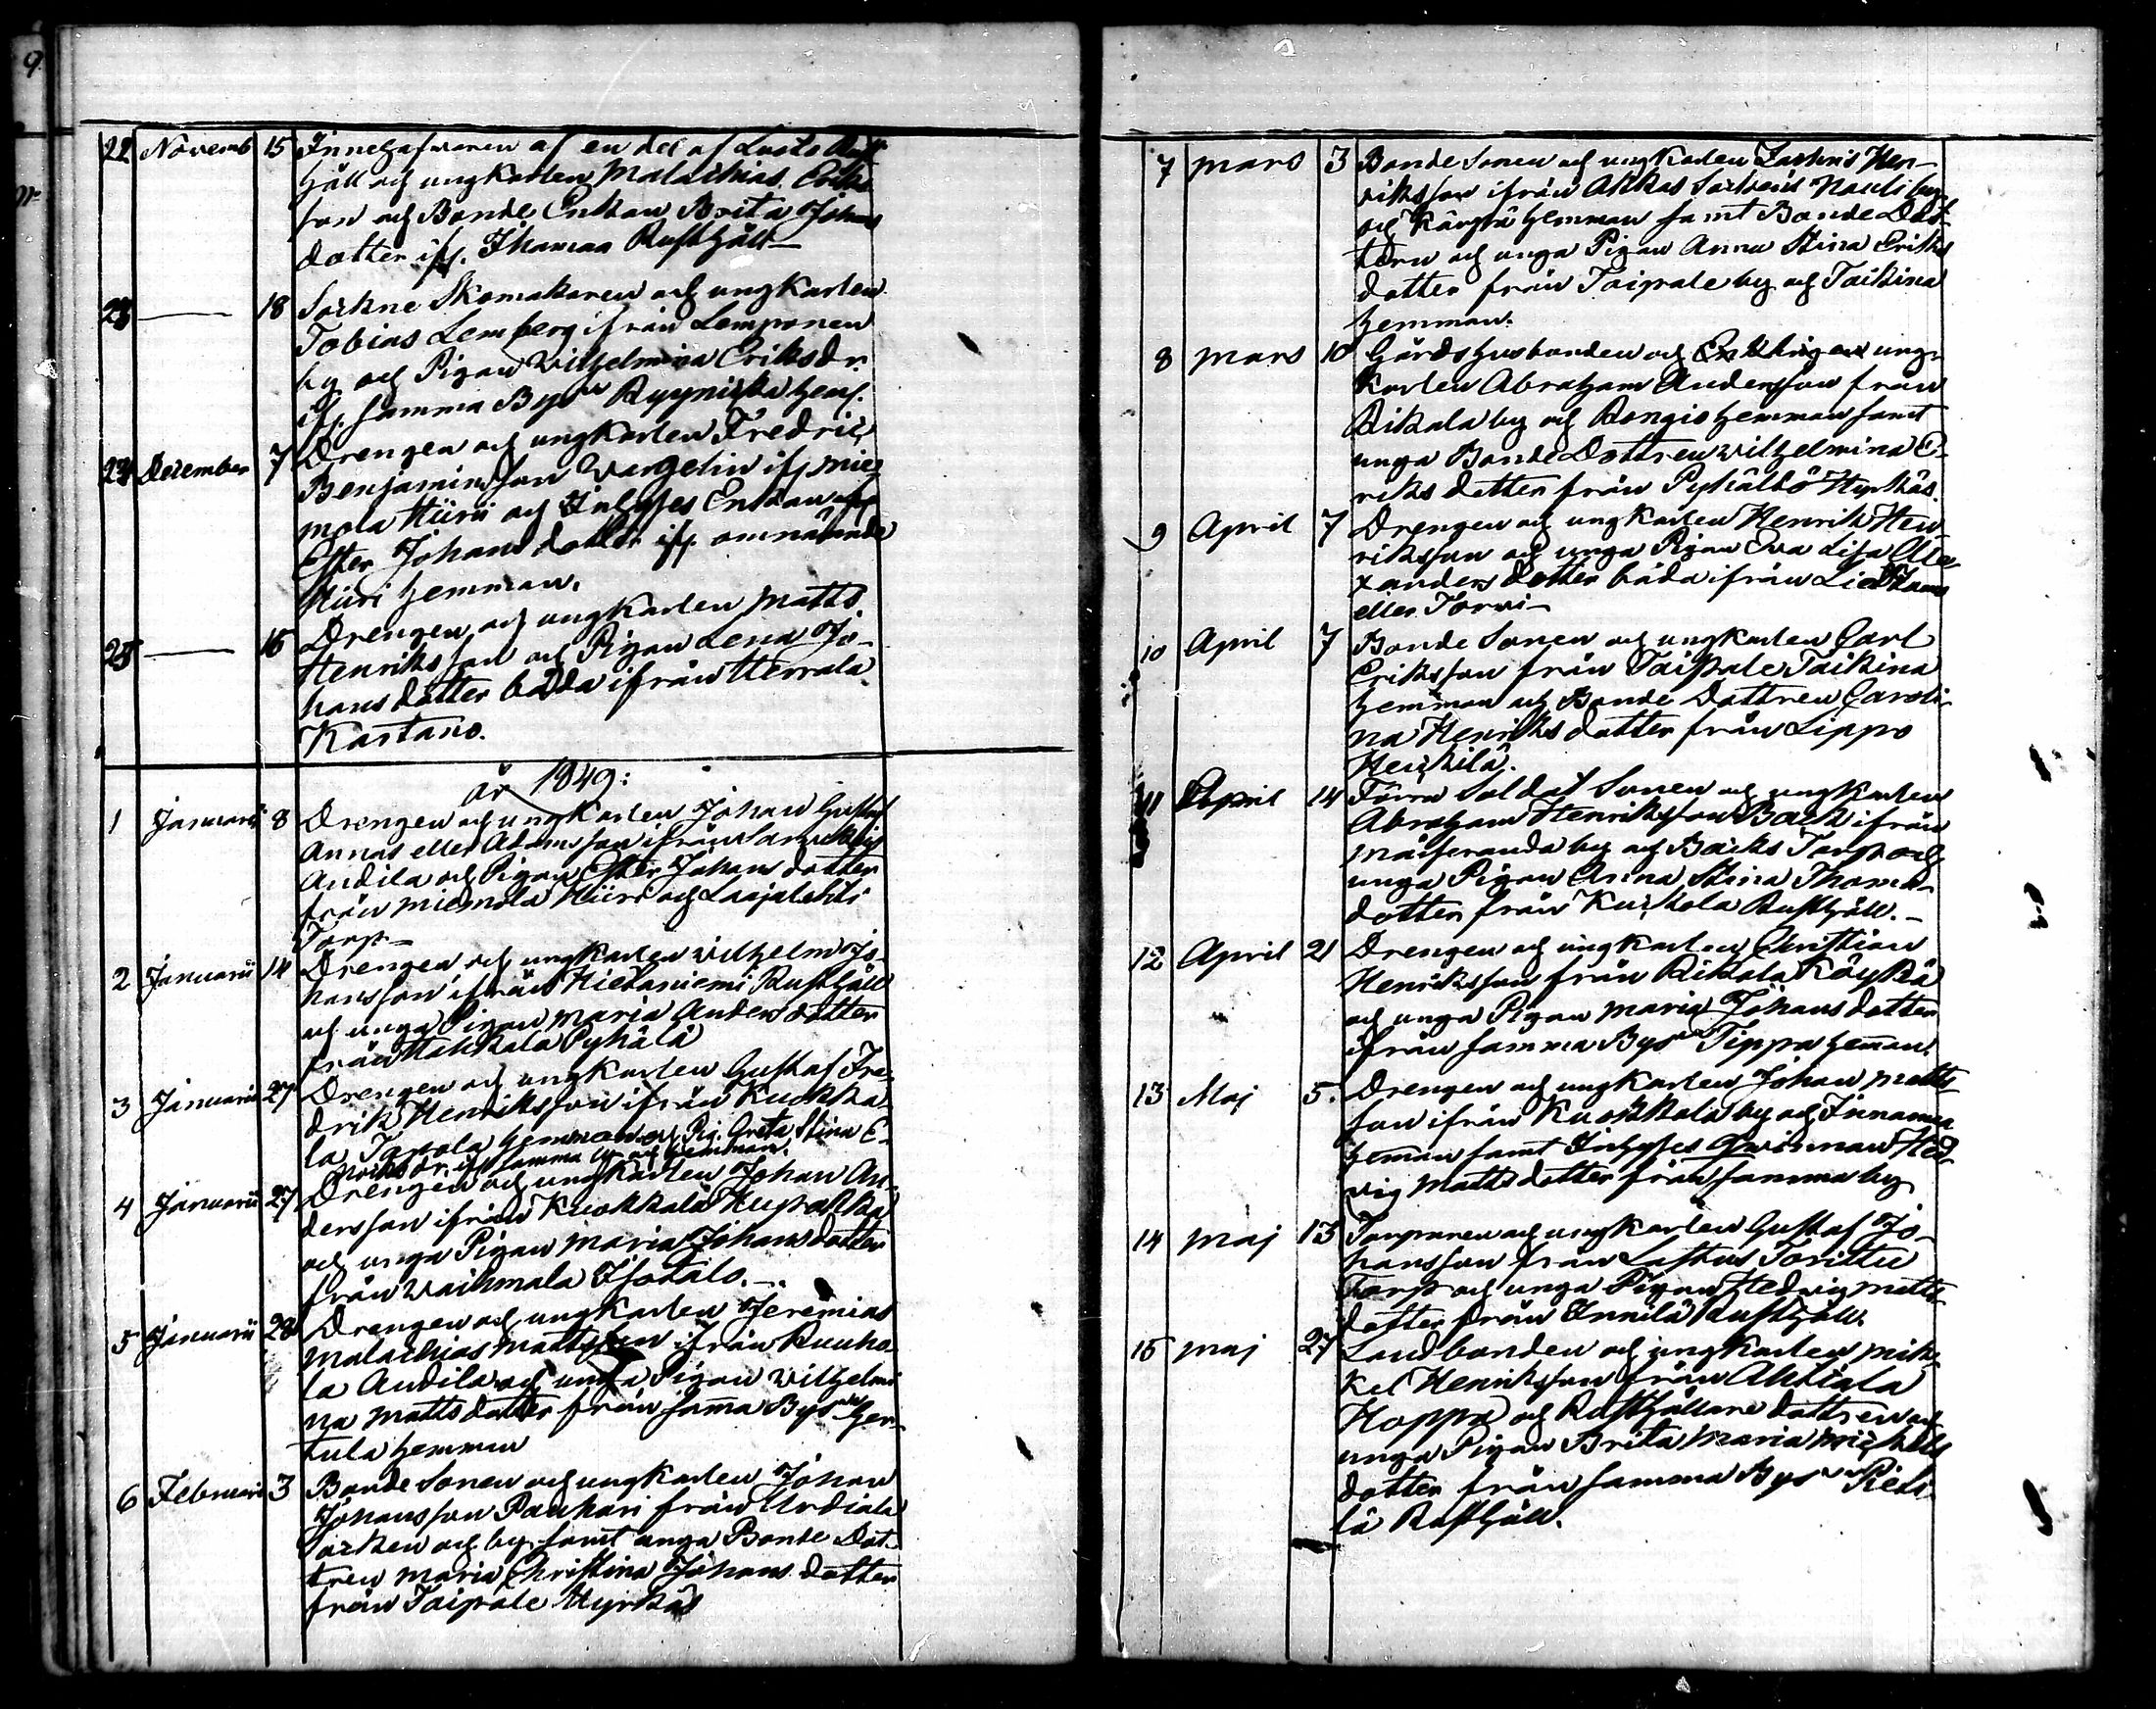 22 Novemb 15 Innehafwaren af en del af Rust
håll och ungkarlen Malachias Eriks
son och Bonde Enkan Brita Johans
dotter ifr. Rusthåll
23 — 18 Sockne Skomakaren och ungkarlen
Tobias Lemberg ifrån Lemponen
by och Pigan Wilhelmina Eriksdr.
ifr. samma Bys hem.
24 December 7 Drengen och ungkarlen Fredric
Benjaminsson ifr Mie
mola Hiiri och Inhyses Enkan
Ester Johans dotter ifr. omnämnde
Hiiri hemman.
25 — 16 Drengen och ungkarlen Matts
Henriksson och Pigan Lena Jo-
hans dotter båda ifrån Herrala
Kartano.
år 1849:
1 Januarii 8 Drengen och ungkarlen Johan Gustaf
Annas eller Adamsson ifrån
Andila och Pigan Ester Johans dotter
från Miemola Hiiri och Laajalehti
Torp—
2 Januarii 14 Drengen och ungkarlen Wilhelm Jo-
hansson ifrån Hietaniemi Rusthåll
och unga Pigan Maria Anders dotter
från Hakkala Pyhälä
3 Januarii 27 Drengen och ungkarlen Gustaf Fre-
drik Henriksson ifrån Kuokka-
la Tapola hemman och Pig. Greta Stina E-
riks dr. ifr samma by och hemman.
4 Januarii 27 Drengen och ungkarlen Johan An-
dersson ifrån Kuokkala
och unga Pigan Maria Johans dotter
från Waihmala Isotalo.—
5 Januarii 28 Drengen och ungkarlen Jeremias
Malachias Mattsson ifrån Ruuho-
la Andila och unga Pigan Wilhelmi
na Matts dotter från samma Bys Her-
tula hemman
6 Februari 3 Bonde Sonen och ungkarlen Johan
Johansson Pauhari från Urdiala
Socken och by samt unga Bonde Dot-
tren Maria Christina Johans dotter
från Taipale Hyrkäs
7 Mars 3 Bonde Sonen och ungkarlen Zachris Hen-
riksson ifrån Akkas Sockens Nauli by
och hemman samt Bonde Dot-
tern och unga Pigan Anna Stina Eriks
dotter från Taipale by och Taikina
hemman.
8 Mars 10 Gårdshusbonden och ung-
karlen Abraham Andersson från
Rikala by och Rongis hemman samt
unga Bonde Dottren Wilhelmina E-
riks dotter från Pyhältö Hyrkäs.
9 April 7 Drengen och ungkarlen Henrik Hen
riksson och unga Pigan Eva Lisa Ale-
xanders dotter båda ifrån
eller Torvi—
10 April 7 Bonde Sonen och ungkarlen Carl
Eriksson från Taipale Taikina
hemman och Bonde Dottren Caroli-
na Henriks dotter från Lippo
Heikilä.
11 April 14 Förra Soldat Sonen och ungkarlen
Abraham Henriksson Back ifrån
by och Backs Torp och
unga Pigan Anna Stina Thomas-
dotter från Kurkola Rusthåll.—
12 April 21 Drengen och ungkarlen Christian
Henriksson från Rikala Köykkä
och unga Pigan Maria Johans dotter
ifrån samma Bys Tippa heman.
13 Maj 5. Drengen och ungkarlen Johan Matts
son ifrån Kuokkala by och
heman samt Inhyses Qwinnan Hed
vig Matts dotter från samma by
14 Maj 13 Torparen och ungkarlen Gustaf Jo-
hansson från Lastus Sorittu
Torp och unga Pigan Hedvig Matts
dotter från Innilä Rusthåll.
15 Maj 27 Landbonden och ungkarlen Mik-
kel Henriksson från Ahtiala
Hoppo och Rusthållare dottren och
unga Pigan Brita Maria Michels
dotter från samma Bys
lä Rusthåll.